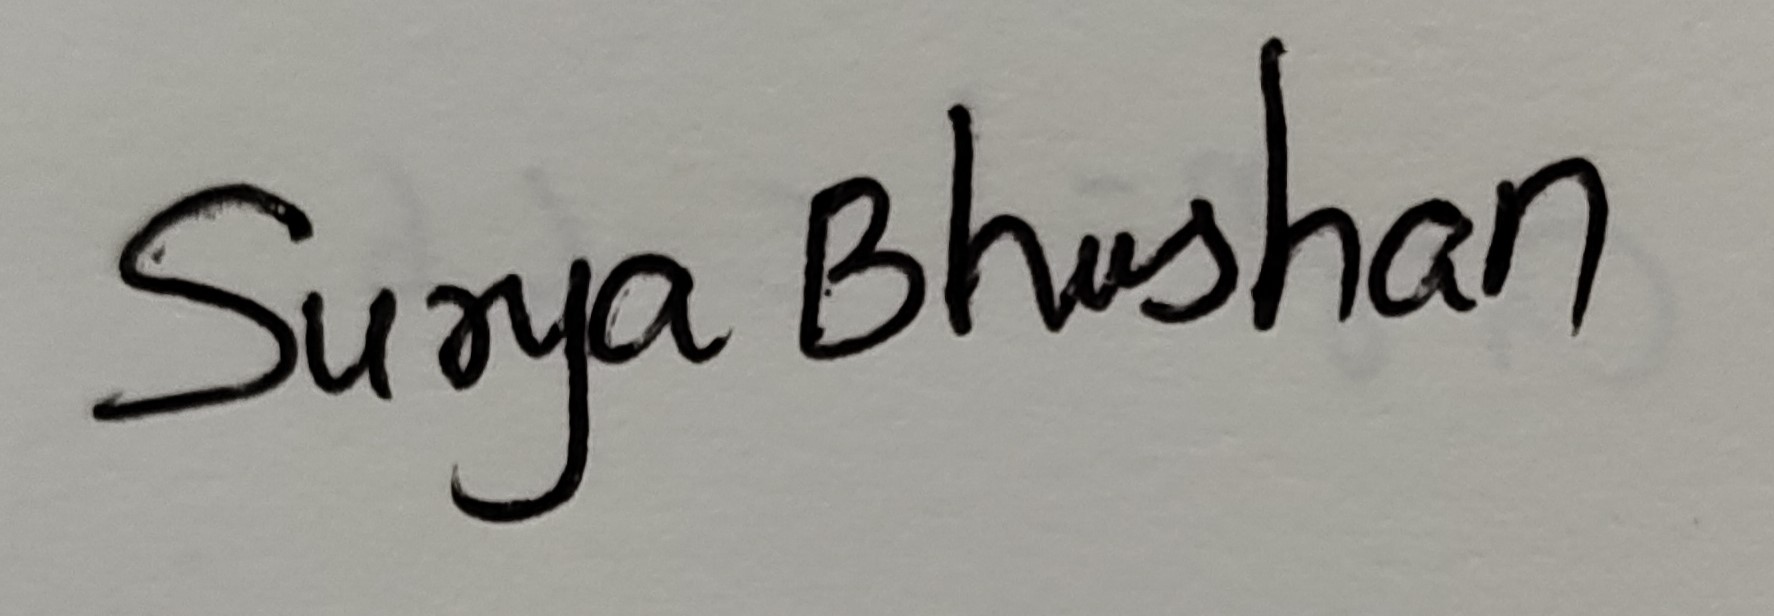 Surya Bhushan